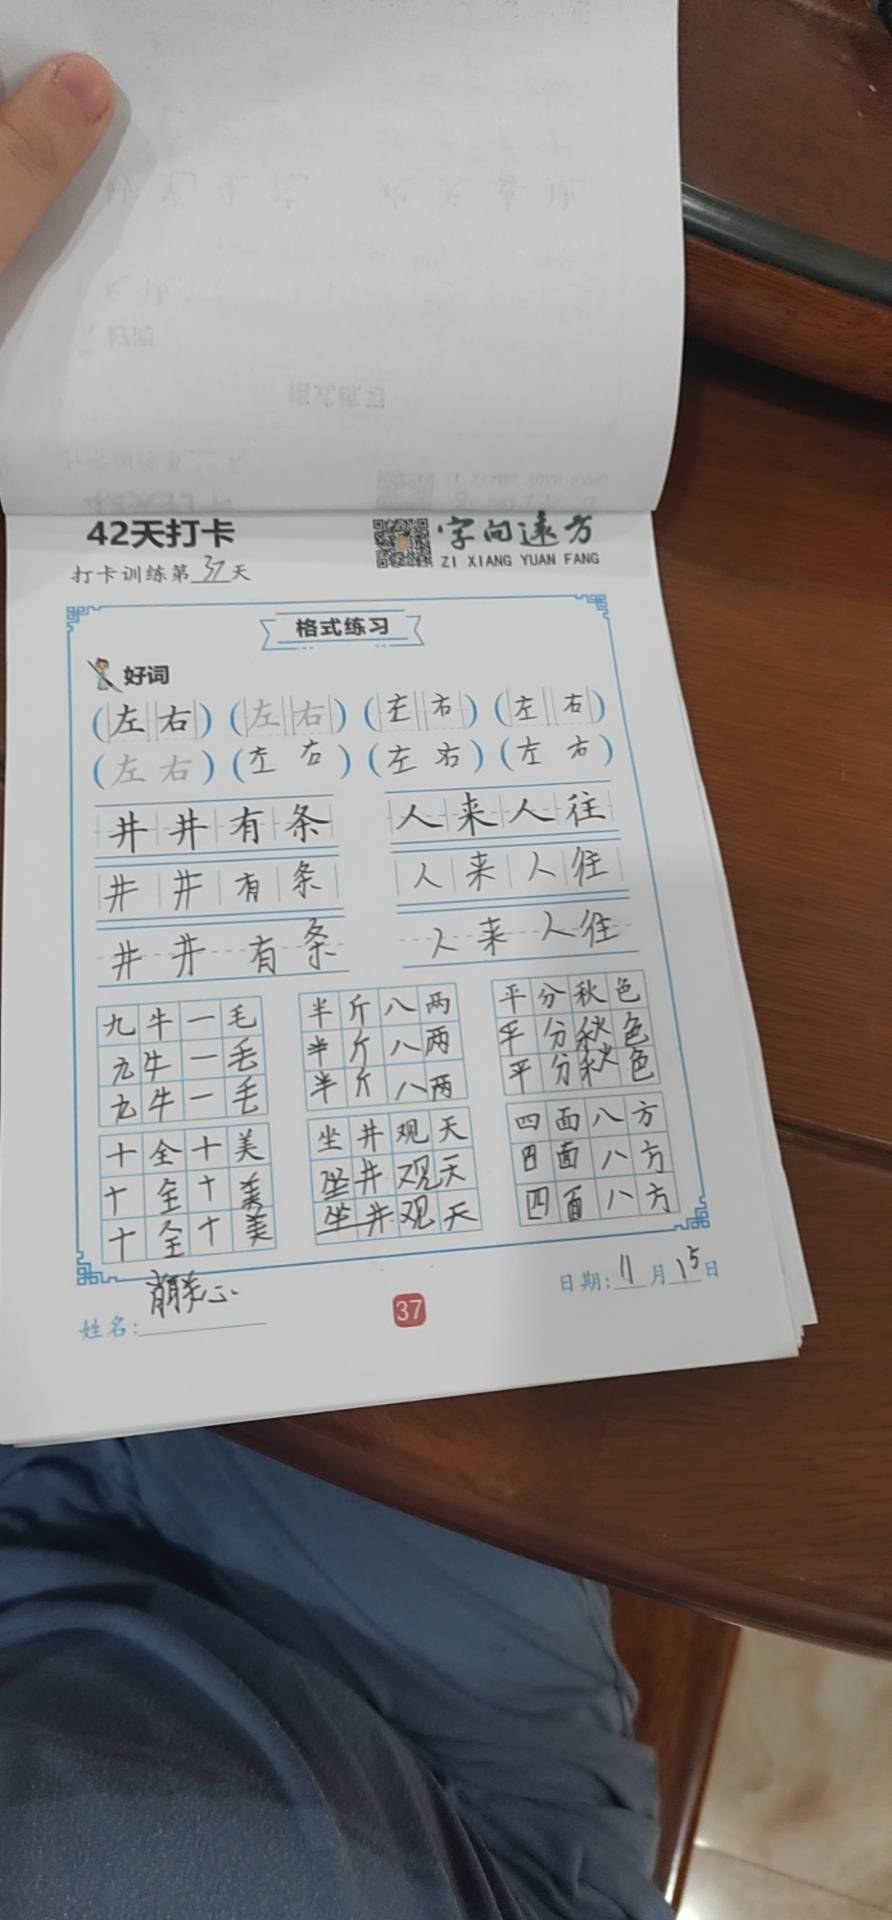 42天打卡
字向远方
ZI XIANG YUAN FANG
打卡训练第37天
格式练习
好词
(左右) (左右) (左右) (左右)
(左右) (左右) (左右) (左右)
井井有条 人来人往
井井有条 人来人往
井井有条 人来人往
九牛一毛 半斤八两 平分秋色
九牛一毛 半斤八两 平分秋色
九牛一毛 半斤八两 平分秋色
十全十美 坐井观天 四面八方
十全十美 坐井观天 四面八方
十全十美 坐井观天 四面八方
姓名:
37
日期:11月15日